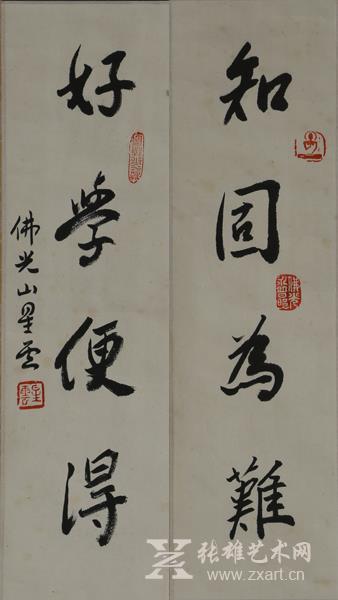 知固為難
好學便得
佛光山星雲
星雲
张雄艺术网
www.zxart.cn